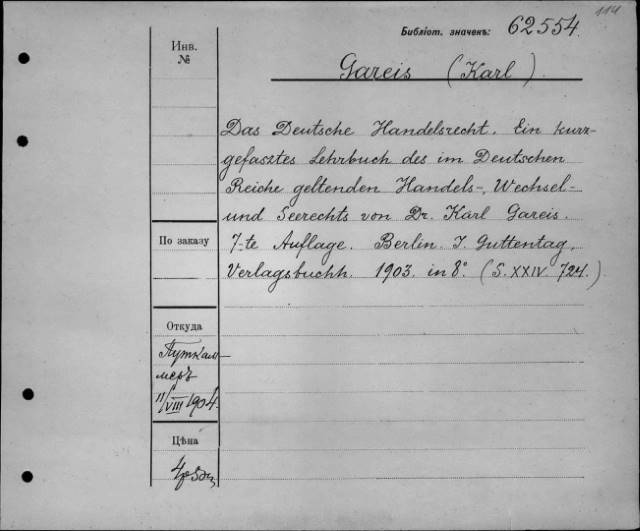 114
Библіот. значекъ: 62554.
Инв.
№
Gareis (Karl).
Das Deutsche Handelsrecht. Ein kurz-
gefasztes Lehrbuch des im Deutschen
Reiche geltenden Handels-, Wechsel-
und Seerechts von Dr. Karl Gareis.
7-te Auflage. Berlin. J. Guttentag,
Verlagsbuchh. 1903. in 8° (S. XXIV. 724.)
По заказу
Откуда
Путкам-
меръ
11/VIII 1904.
Цѣна